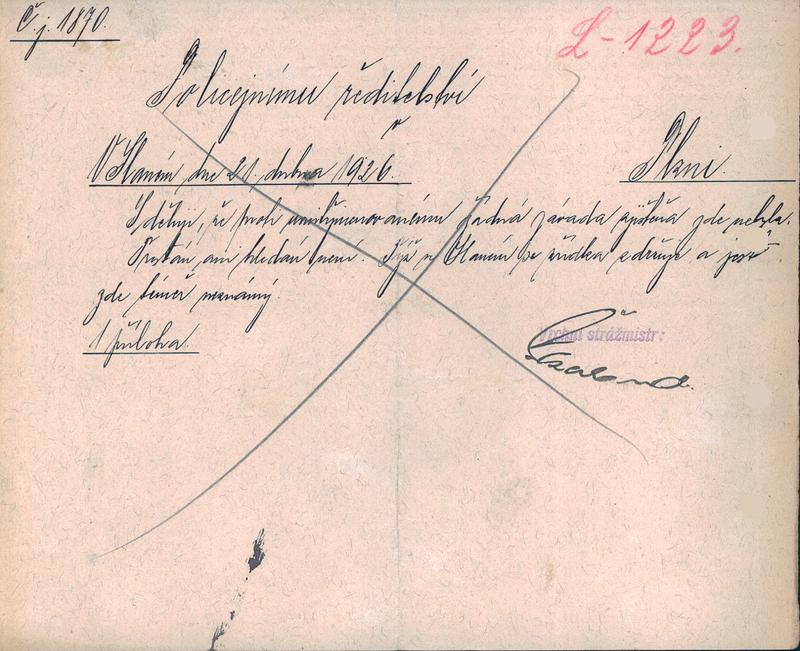 Č.j. 1870.
L-1223.
Policejnímu ředitelství
v
V Slaném, dne 21. dubna 1926.
Plzni.
Sděluji, že proti jmenovanému žádná závada zjištěna zde nebyla.
Trestán, ani hledán není. Týž v Slaném se zřídka zdržuje a jest
zde téměř neznámý.
1 příloha.
Vrchní strážmistr: